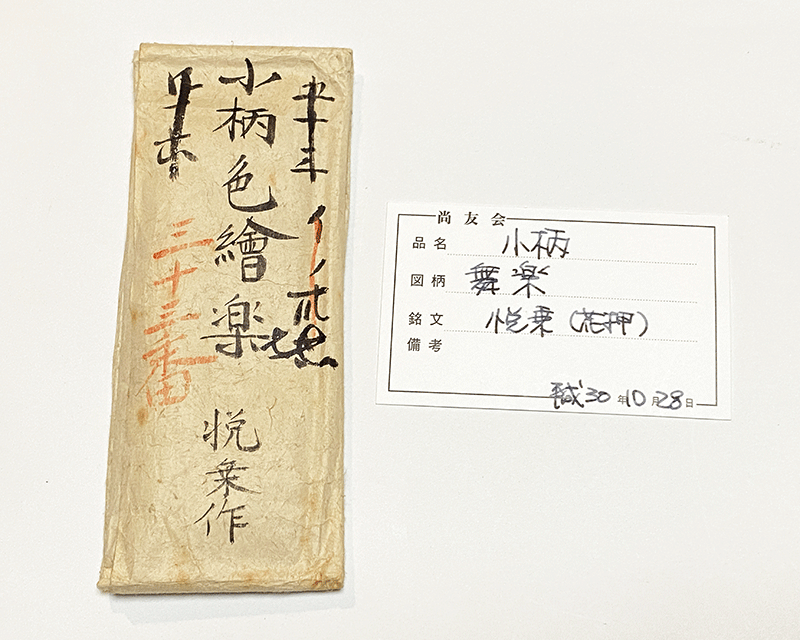 小柄色繪楽
悦乗作
三十三番
尚友会
品名 小柄
図柄 舞楽
銘文 悦乗(花押)
備考
平成30年10月28日